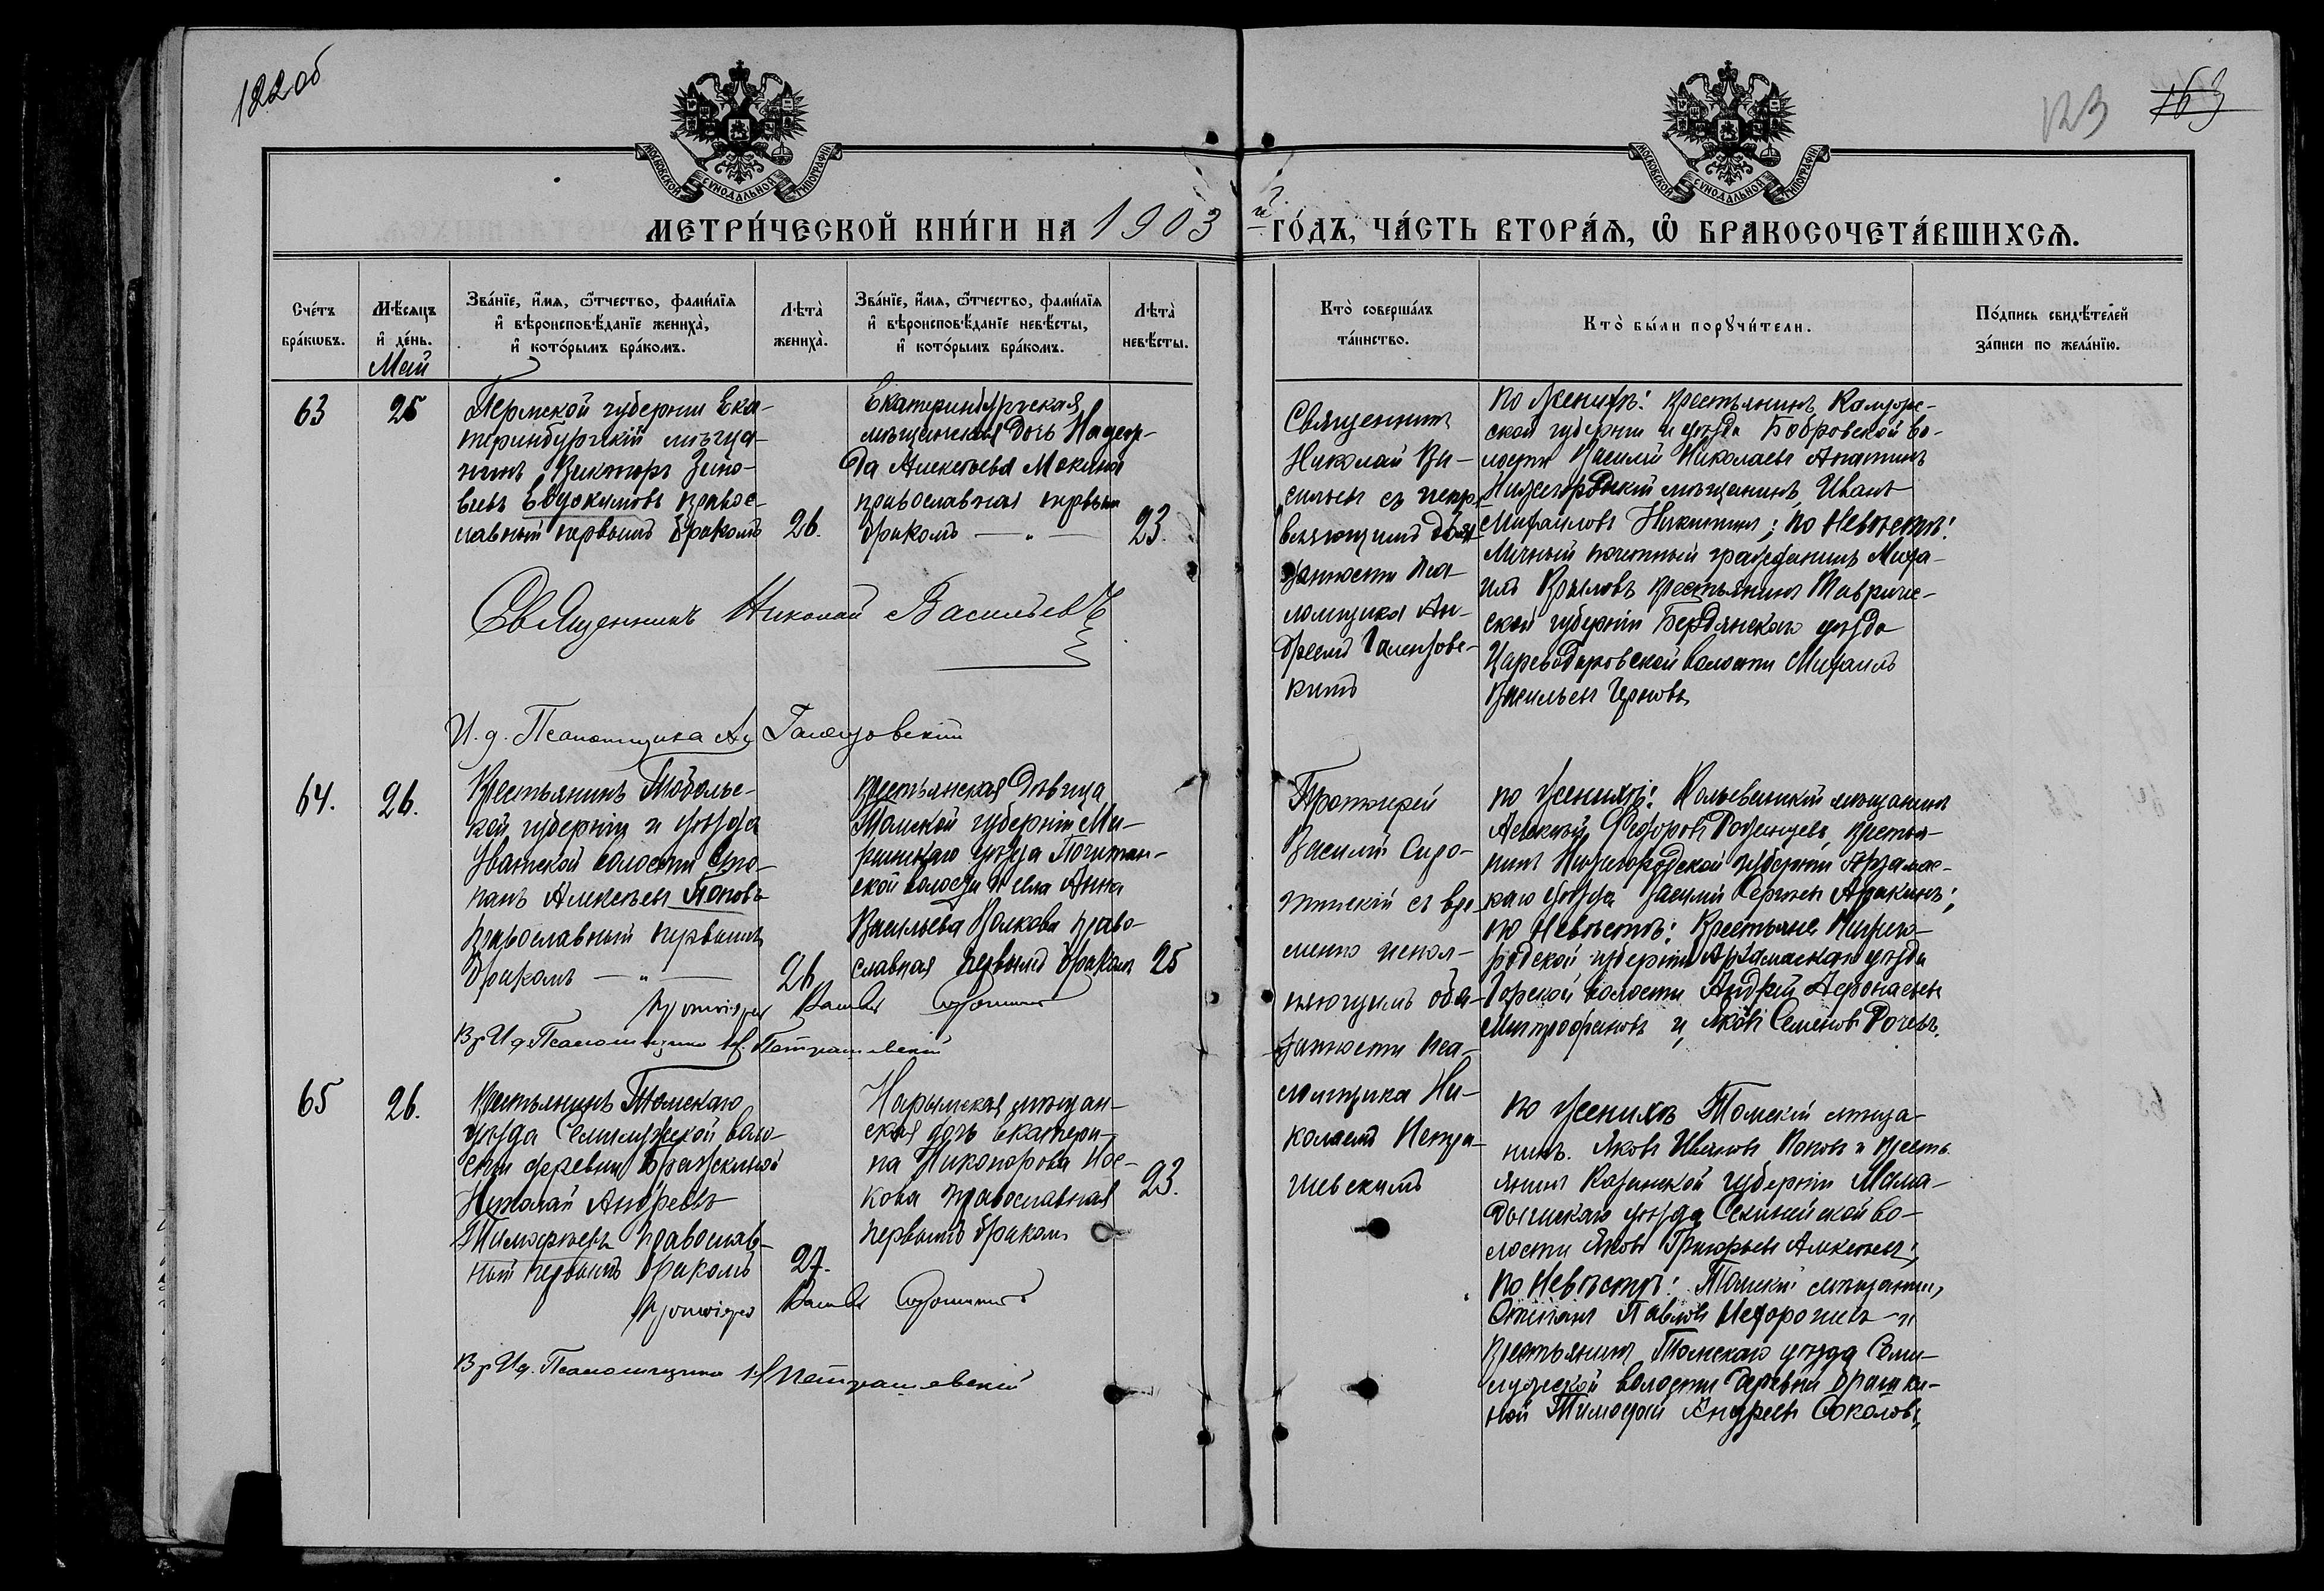 122об
123
163
МОСКОВСКОЙ СѴНОДАЛЬНОЙ ТИПОГРАФІИ
МОСКОВСКОЙ СѴНОДАЛЬНОЙ ТИПОГРАФІИ
МЕТРИ́ЧЕСКОЙ КНИ́ГИ НА 1903 й ГО́ДЪ, ЧА́СТЬ ВТОРА́Ѧ, Ѽ БРАКОСОЧЕТА́ВШИХСѦ.
Сче́тъ бра́кѡвъ.
Мѣ́сѧцъ и҆ де́нь.
Май
Зва́нїе, и҆́мѧ, ѻ҆́тчество, фамі́лїѧ
и҆ вѣроисповѣ́данїе жениха̀,
и҆ кото́рымъ бра́комъ.
Лѣ́та̀ жениха̀.
Зва́нїе, и҆́мѧ, ѻ҆́тчество, фамі́лїѧ
и҆ вѣроисповѣ́данїе невѣ́сты,
и҆ кото́рымъ бра́комъ.
Лѣ́та̀ невѣ́сты.
Кто̀ соверша́лъ
та́инство.
Кто̀ бы́ли порꙋчи́тели.
По́дпись свидѣ́телей
за́писи по жела́нїю.
63
25
Пермской губерніи Ека-
теринбургскій мѣща-
нинъ Викторъ Зино-
вьевъ Евдокимовъ правос-
лавный первымъ бракомъ
26.
Екатеринбургская
мѣщанская дочь Надеж-
да Алексѣева Мокина
православная первым
бракомъ — „ —
23.
Священникъ
Николай Ва-
сильевъ съ
занности пса-
ломщика Ан-
дреемъ Галензовс-
кимъ
по Женихѣ: крестьянинъ Калужс-
кой губерніи и уѣзда Бобровской во-
лости Василій Николаевъ
Нижегородскій мѣщанинъ Иванъ
Михаиловъ Никитинъ; по Невѣстѣ:
Личный почетный гражданинъ Миха-
илъ Крыловъ крестьянинъ Тавриче-
ской губерніи Бердянскаго уѣзда
Цареводаровской волости Михаилъ
Васильевъ
Священникъ Николай Васильевъ
И. д. Псаломщика Ан Галензовскій
64.
26.
Крестьянинъ Тобольс-
кой губерніи и уѣзда
Уватской волости Сте-
панъ Алексѣевъ Поповъ
православный первымъ
бракомъ — „ —
26
крестьянская дѣвица
Томской губерніи Ма-
ріинскаго уѣзда Почитан-
ской волости и села Анна
Васильева Волкова право-
славная первымъ бракомъ
25
Протоіерей
Василій Сиро-
тинскій съ вре-
менно испол-
няющимъ обя-
занности пса-
ломщика Ни-
колаемъ Петра-
шевскимъ
по Женихѣ: Колыванскій мѣщанинъ
Алексѣй Федоровъ крестья-
нинъ Нижегородской губерніи Арзамас-
каго уѣзда Василій Сергѣевъ Аракинъ;
по Невѣстѣ: Крестьяне Нижего-
родской губерніи Арзамаскаго уѣзда
волости Андрей Афонасьевъ
Митрофановъ и Яковъ Семеновъ
Протоіерей Василій Сиротинскій
Вр И д. Псаломщика Н. Петрашевскій
65
26.
Крестьянинъ Томскаго
уѣзда Семилужской воло-
сти деревни
Николай Андреевъ
Тимофеевъ православ-
ный первымъ бракомъ
27.
Нарымская мѣщан-
ская дочь Екатери-
на Никонорова Нос-
кова православная
первымъ бракомъ
23.
по Женихѣ Томскій мѣща-
нинъ. Яковъ Ивановъ Поповъ и кресть
янинъ Казанской губерніи Мама-
дышскаго уѣзда во-
лости Яковъ Григорьевъ Алексѣевъ;
по Невѣстѣ: Томскій мѣщанинъ,
Степанъ Павловъ и
Крестьянинъ Томскаго уѣзда Семи-
лужской волости деревни
ной Тимофей Андреевъ Соколовъ
Протоіерей Василій Сиротинскій
Вр И д. Псаломщика Н Петрашевскій